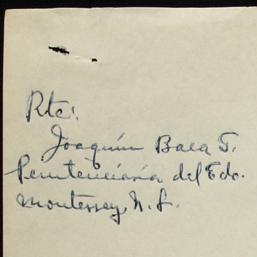 Rte:
Joaquín Baca T.
Penitenciaría del Edo.
Monterrey, N. L.